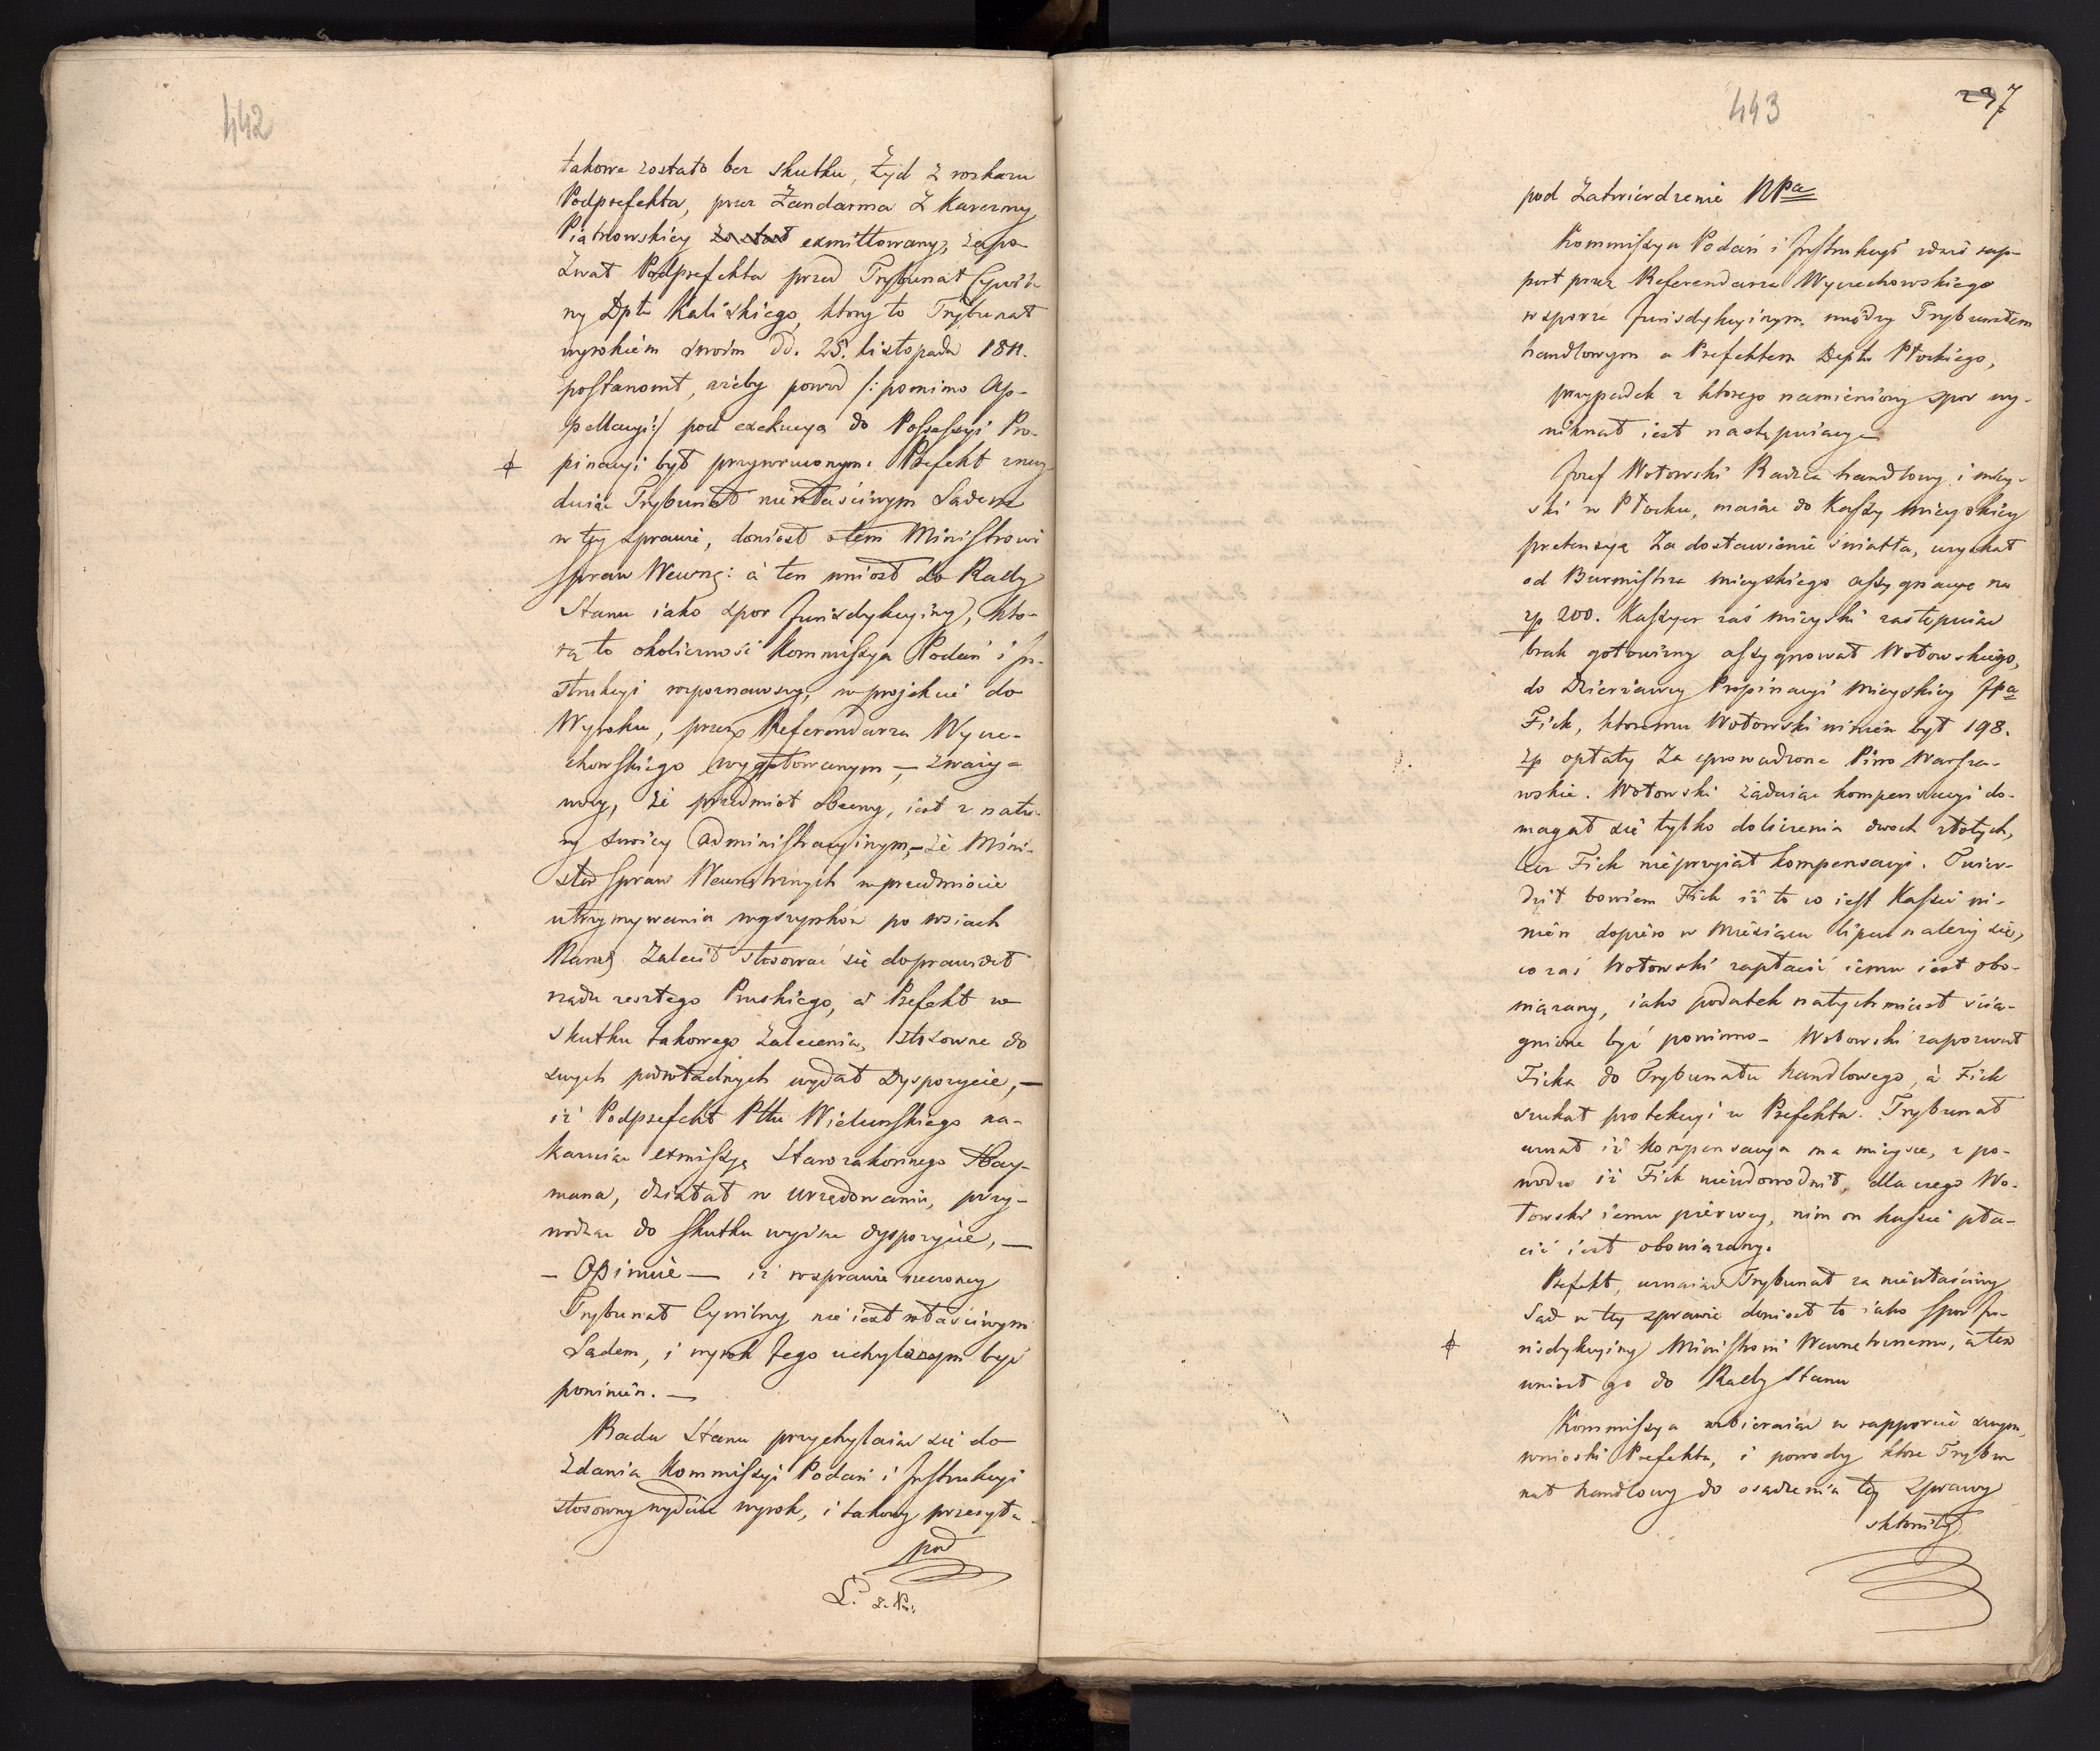 442
takowe zostało bez skutku, Żyd z rozkazu
Podprefekta, przez Żandarma z Karczmy
Piątnowskiey został exmittowany, zapo-
zwał Podprefekta przed Trybunał Cywil-
ny Dptu Kaliskiego, ktory to Trybunał
wyrokiem swoim dd. 25. Listopada 1811.
postanowił, ażeby powod /: pomimo Ap-
pellacyi :/ pod exekucyą do Possessyi Pro-
pinacyi był przywrucony. Prefekt znay-
duiąc Trybunał niewłaściwym Sądem
w tey sprawie, doniosł o tem Ministrowi
Spraw Wewnę: à ten wniosł do Rady
Stanu iako spor Jurisdykcyiny, kto-
rą to okoliczność Kommissya Podań i In-
strukcyi rozpoznawszy, w projekcie do
Wyroku, przez Referendarza Wycze-
chowskiego wygotowanym — zważy-
wszy, że przedmiot obecny, iest z natu-
ry swoiey administracyinym, — że Mini-
ster Spraw Wewnętrznych w przedmiocie
utrzymywania wyszynków po wsiach
Narod. Zalecił stosować się do prawideł
rządu zeszłego Pruskiego, à Prefekt w
skutku takowego zalecenia, stosowne do
swych podwładnych wydał dyspozycie, —
iż Podprefekt Pttu Wieluńskiego na-
kazuiąc exmissyą Starozakonnego Hay-
mana, działał w urzędowaniu, przy-
wodząc do skutku wyższe dyspozycie, —
— Opiniuie — iż w sprawie rzeczoney
Trybunał Cywilny nie iest właściwym
Sądem, i wyrok Jego uchylonym być
powinien. —
Rada Stanu przychylaiąc się do
Zdania Kommissyi Podań i Instrukcyi
stosowny wydaie wyrok, i takowy przesyła
pod
443
237
pod Zatwierdzenie NPa
Kommissya Podań i Instrukcyi zdaie rap-
port przez Referendarza Wyczechowskiego
w sporze Jurisdykcyinym między Trybunałem
handlowym a Prefektem Deptu Płockiego,
przypadek z ktorego namieniony spor wy-
niknął iest następuiący —
Jozef Wołowski Radzca handlowy i miey-
ski w Płocku, maiąc do Kassy mieyskiey
pretensyą za dostawienie światła, uzyskał
od Burmistrza mieyskiego assygnacyą na
zp 200. Kassyer zaś mieyski zastępuiąc
brak gotowizny assygnował Wołowskiego,
do Dzierżawcy Propinacyi mieyskiey JPa
Fick, ktoremu Wołowski winien był 198.
zp opłaty za sprowadzone Piwo Warsza-
wskie. Wołowski żądaiąc kompensacyi do-
magał się tylko doliczenia dwoch złotych,
lecz Fick nieprzyiął kompensacyi. Twier-
dził bowiem Fick iż to co iest Kassie wi-
nien dopiero w Miesiącu lipcu należy się,
co zaś Wołowski zapłacić iemu iest obo-
wiązany, iako podatek natychmiast ścią-
gnione być powinno — Wołowski zapozwał
Ficka do Trybunału handlowego, à Fick
szukał protekcyi u Prefekta. Trybunał
uznał iż kompensacya ma mieysce, z po-
wodu iż Fick nieudowodnił, dla czego Wo-
łowski iemu pierwey, nim on kassie pła-
cić iest obowiązany.
Prefekt, uznaiąc Trybunał za niewłaściwy
Sąd w tey sprawie doniosł to iako spor Ju-
risdykcyiny Ministrowi Wewnętrznemu, à ten
wniosł go do Rady Stanu
Kommissya zabieraiąc w rapporcie swym,
wnioski Prefekta, i powody ktore Trybu-
nał handlowy do osądzenia tey sprawy
skłoniły